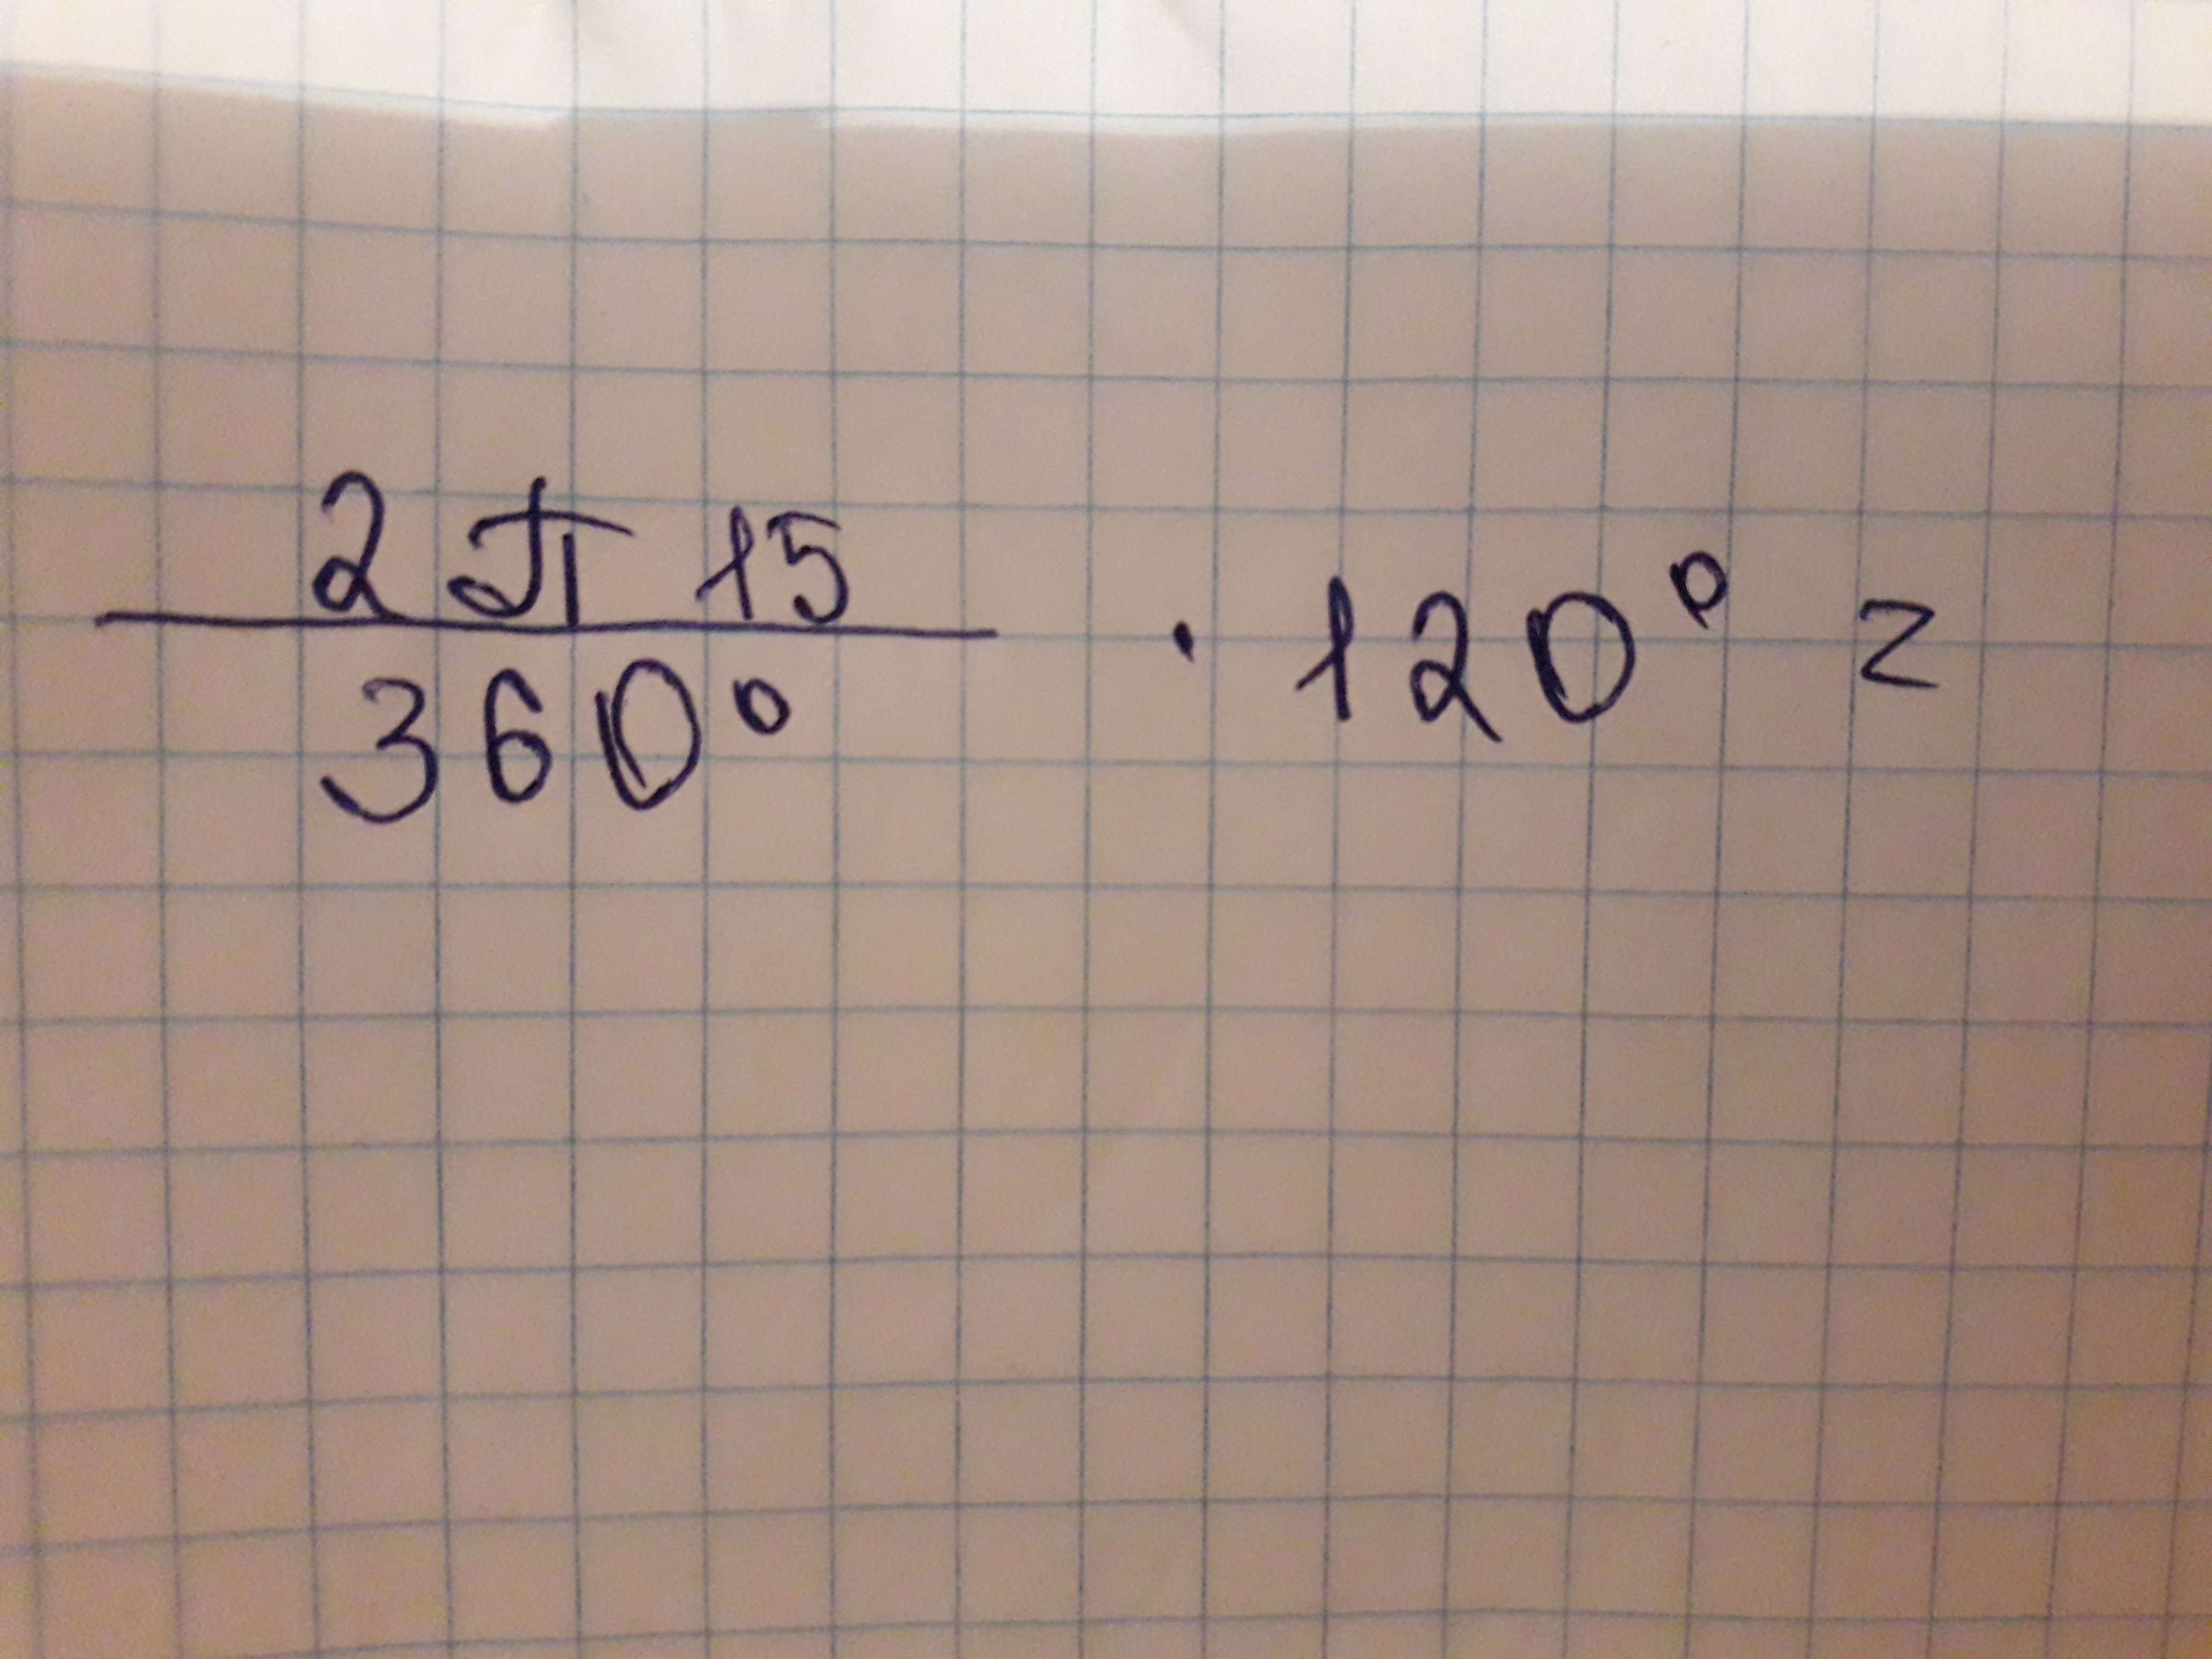 2π 15
360° · 120° =